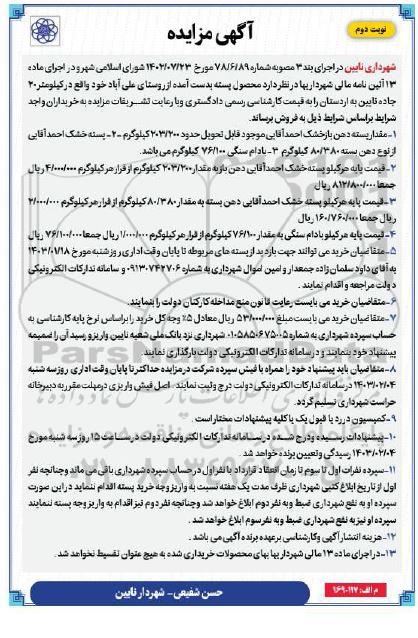 آگهی مزایده
نوبت دوم
شهرداری نایین در اجرای بند ۳ مصوبه شماره ۷۸/۶/۸۹ مورخ ۱۴۰۲/۰۷/۲۳ شورای اسلامی شهر و در اجرای ماده
۱۳ آئین نامه مالی شهرداریها در نظر دارد محصول پسته بدست آمده از روستای علی آباد خود واقع در کیلومتر ۲۰
جاده نایین به اردستان را به قیمت کارشناسی رسمی دادگستری و با رعایت تشریفات مزایده به خریداران واجد
شرایط براساس شرایط ذیل به فروش برساند.
۱- مقدار پسته دهن باز خشک احمد آقایی موجود قابل تحویل حدود ۲۰۳/۲۰۰ کیلوگرم ۲- پسته خشک احمد آقایی
از نوع دهن بسته ۸۰/۳۸۰ کیلوگرم ۳- بادام سنگی ۷۶/۱۰۰ کیلوگرم می باشد.
۲- قیمت پایه هر کیلو پسته خشک احمد آقایی دهن باز به مقدار ۲۰۳/۲۰۰ کیلوگرم از قرار هر کیلوگرم ۴/۰۰۰/۰۰۰ ریال
جمعا ۸۱۲/۸۰۰/۰۰۰ ریال
۳- قیمت پایه هر کیلو پسته خشک احمد آقایی دهن بسته به مقدار ۸۰/۳۸۰ کیلوگرم از قرار هر کیلوگرم ۲/۰۰۰/۰۰۰
ریال جمعا ۱۶۰/۷۶۰/۰۰۰ ریال
۴- قیمت پایه هر کیلو بادام سنگی به مقدار ۷۶/۱۰۰ کیلوگرم از قرار هر کیلوگرم ۱/۰۰۰/۰۰۰ ریال جمعا ۷۶/۱۰۰/۰۰۰ ریال
۵- متقاضیان خرید می توانند جهت بازدید از پسته های مربوطه تا پایان وقت اداری روز شنبه مورخ ۱۴۰۳/۰۱/۱۸
به آقای داود سلمان زاده جمعدار و امین اموال شهرداری به شماره ۰۹۱۳۰۷۴۲۷۰۶ و سامانه تدارکات الکترونیکی
دولت مراجعه و اقدام نمایند.
۶- متقاضیان خرید می بایست رعایت قانون منع مداخله کارکنان دولت را بنمایند.
۷- متقاضیان خرید می بایست مبلغ ۵۳/۰۰۰/۰۰۰ ریال معادل ۵٪ وجه کل خرید را براساس نرخ پایه کارشناسی به
حساب سپرده شهرداری به شماره ۰۱۰۵۸۵۰۶۷۵۰۰۵ شهرداری نزد بانک ملی شعبه نایین واریز و رسید آن را ضمیمه
پیشنهاد خود بنمایند و در سامانه تدارکات الکترونیکی دولت بارگذاری نمایند.
۸- متقاضیان باید پیشنهاد خود را همراه با فیش سپرده شرکت در مزایده حداکثر تا پایان وقت اداری روز سه شنبه
۱۴۰۳/۰۲/۰۴ در سامانه تدارکات الکترونیکی دولت درج و ثبت نمایند. اصل فیش واریزی در مهلت مقرر به دبیرخانه
حراست شهرداری تسلیم گردد.
۹- کمیسیون در رد یا قبول یک یا کلیه پیشنهادات مختار است.
۱۰- پیشنهادات رسیده و درج شده در سامانه تدارکات الکترونیکی دولت در ساعت ۱۵ روز سه شنبه مورخ
۱۴۰۳/۰۲/۰۴ رسیدگی و تعیین برنده خواهد شد.
۱۱- سپرده نفرات اول تا سوم تا زمان انعقاد قرارداد با نفر اول در حساب سپرده شهرداری باقی می ماند و چنانچه نفر
اول از تاریخ ابلاغ کتبی شهرداری ظرف مدت یک هفته نسبت به واریز وجه خرید پسته اقدام ننماید در این صورت
سپرده او به نفع شهرداری ضبط و به نفر دوم ابلاغ خواهد شد و چنانچه نفر دوم نیز اقدام به واریز وجه پسته ننمایند
سپرده او نیز به نفع شهرداری ضبط و به نفر سوم ابلاغ خواهد شد.
۱۲- هزینه انتشار آگهی و کارشناسی برعهده برنده آگهی می باشد.
۱۳- در اجرای ماده ۱۳ مالی شهرداریها بهای محصولات خریداری شده به هیچ عنوان تقسیط نخواهد شد.
حسن شفیعی- شهردار نایین
م الف: ۱۶۹۰۱۱۷